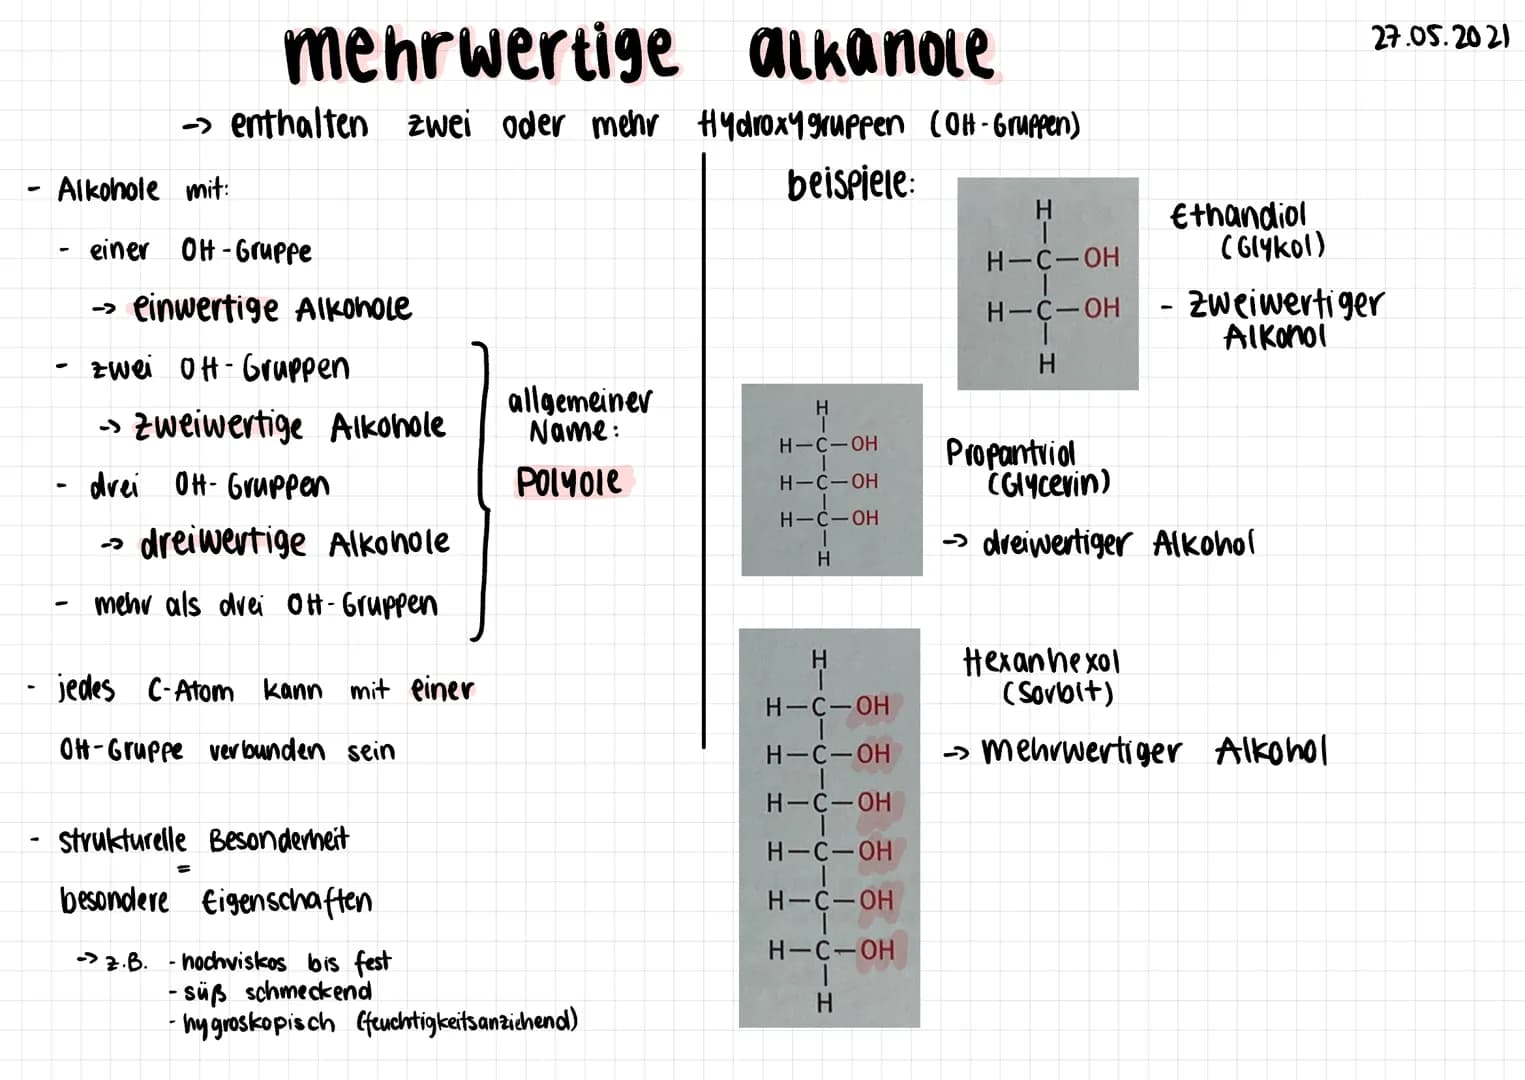 mehrwertige alkanole
27.05.2021
-> enthalten zwei oder mehr Hydroxygruppen (OH-Gruppen)
- Alkohole mit:
- einer OH-Gruppe
-> einwertige Alkohole
- zwei OH-Gruppen
-> zweiwertige Alkohole
- drei OH-Gruppen
-> dreiwertige Alkohole
- mehr als drei OH-Gruppen
allgemeiner
Name:
Polyole
- jedes C-Atom kann mit einer
OH-Gruppe verbunden sein
- strukturelle Besonderheit
=
besondere Eigenschaften
-> z.B. - hochviskos bis fest
- süß schmeckend
- hygroskopisch (feuchtigkeitsanziehend)
beispiele:
H
H-C-OH
H-C-OH
H
Ethandiol
(Glykol)
- zweiwertiger
Alkohol
H
H-C-OH
H-C-OH
H-C-OH
H
Propantriol
(Glycerin)
-> dreiwertiger Alkohol
H
H-C-OH
H-C-OH
H-C-OH
H-C-OH
H-C-OH
H-C-OH
H
Hexanhexol
(Sorbit)
-> mehrwertiger Alkohol